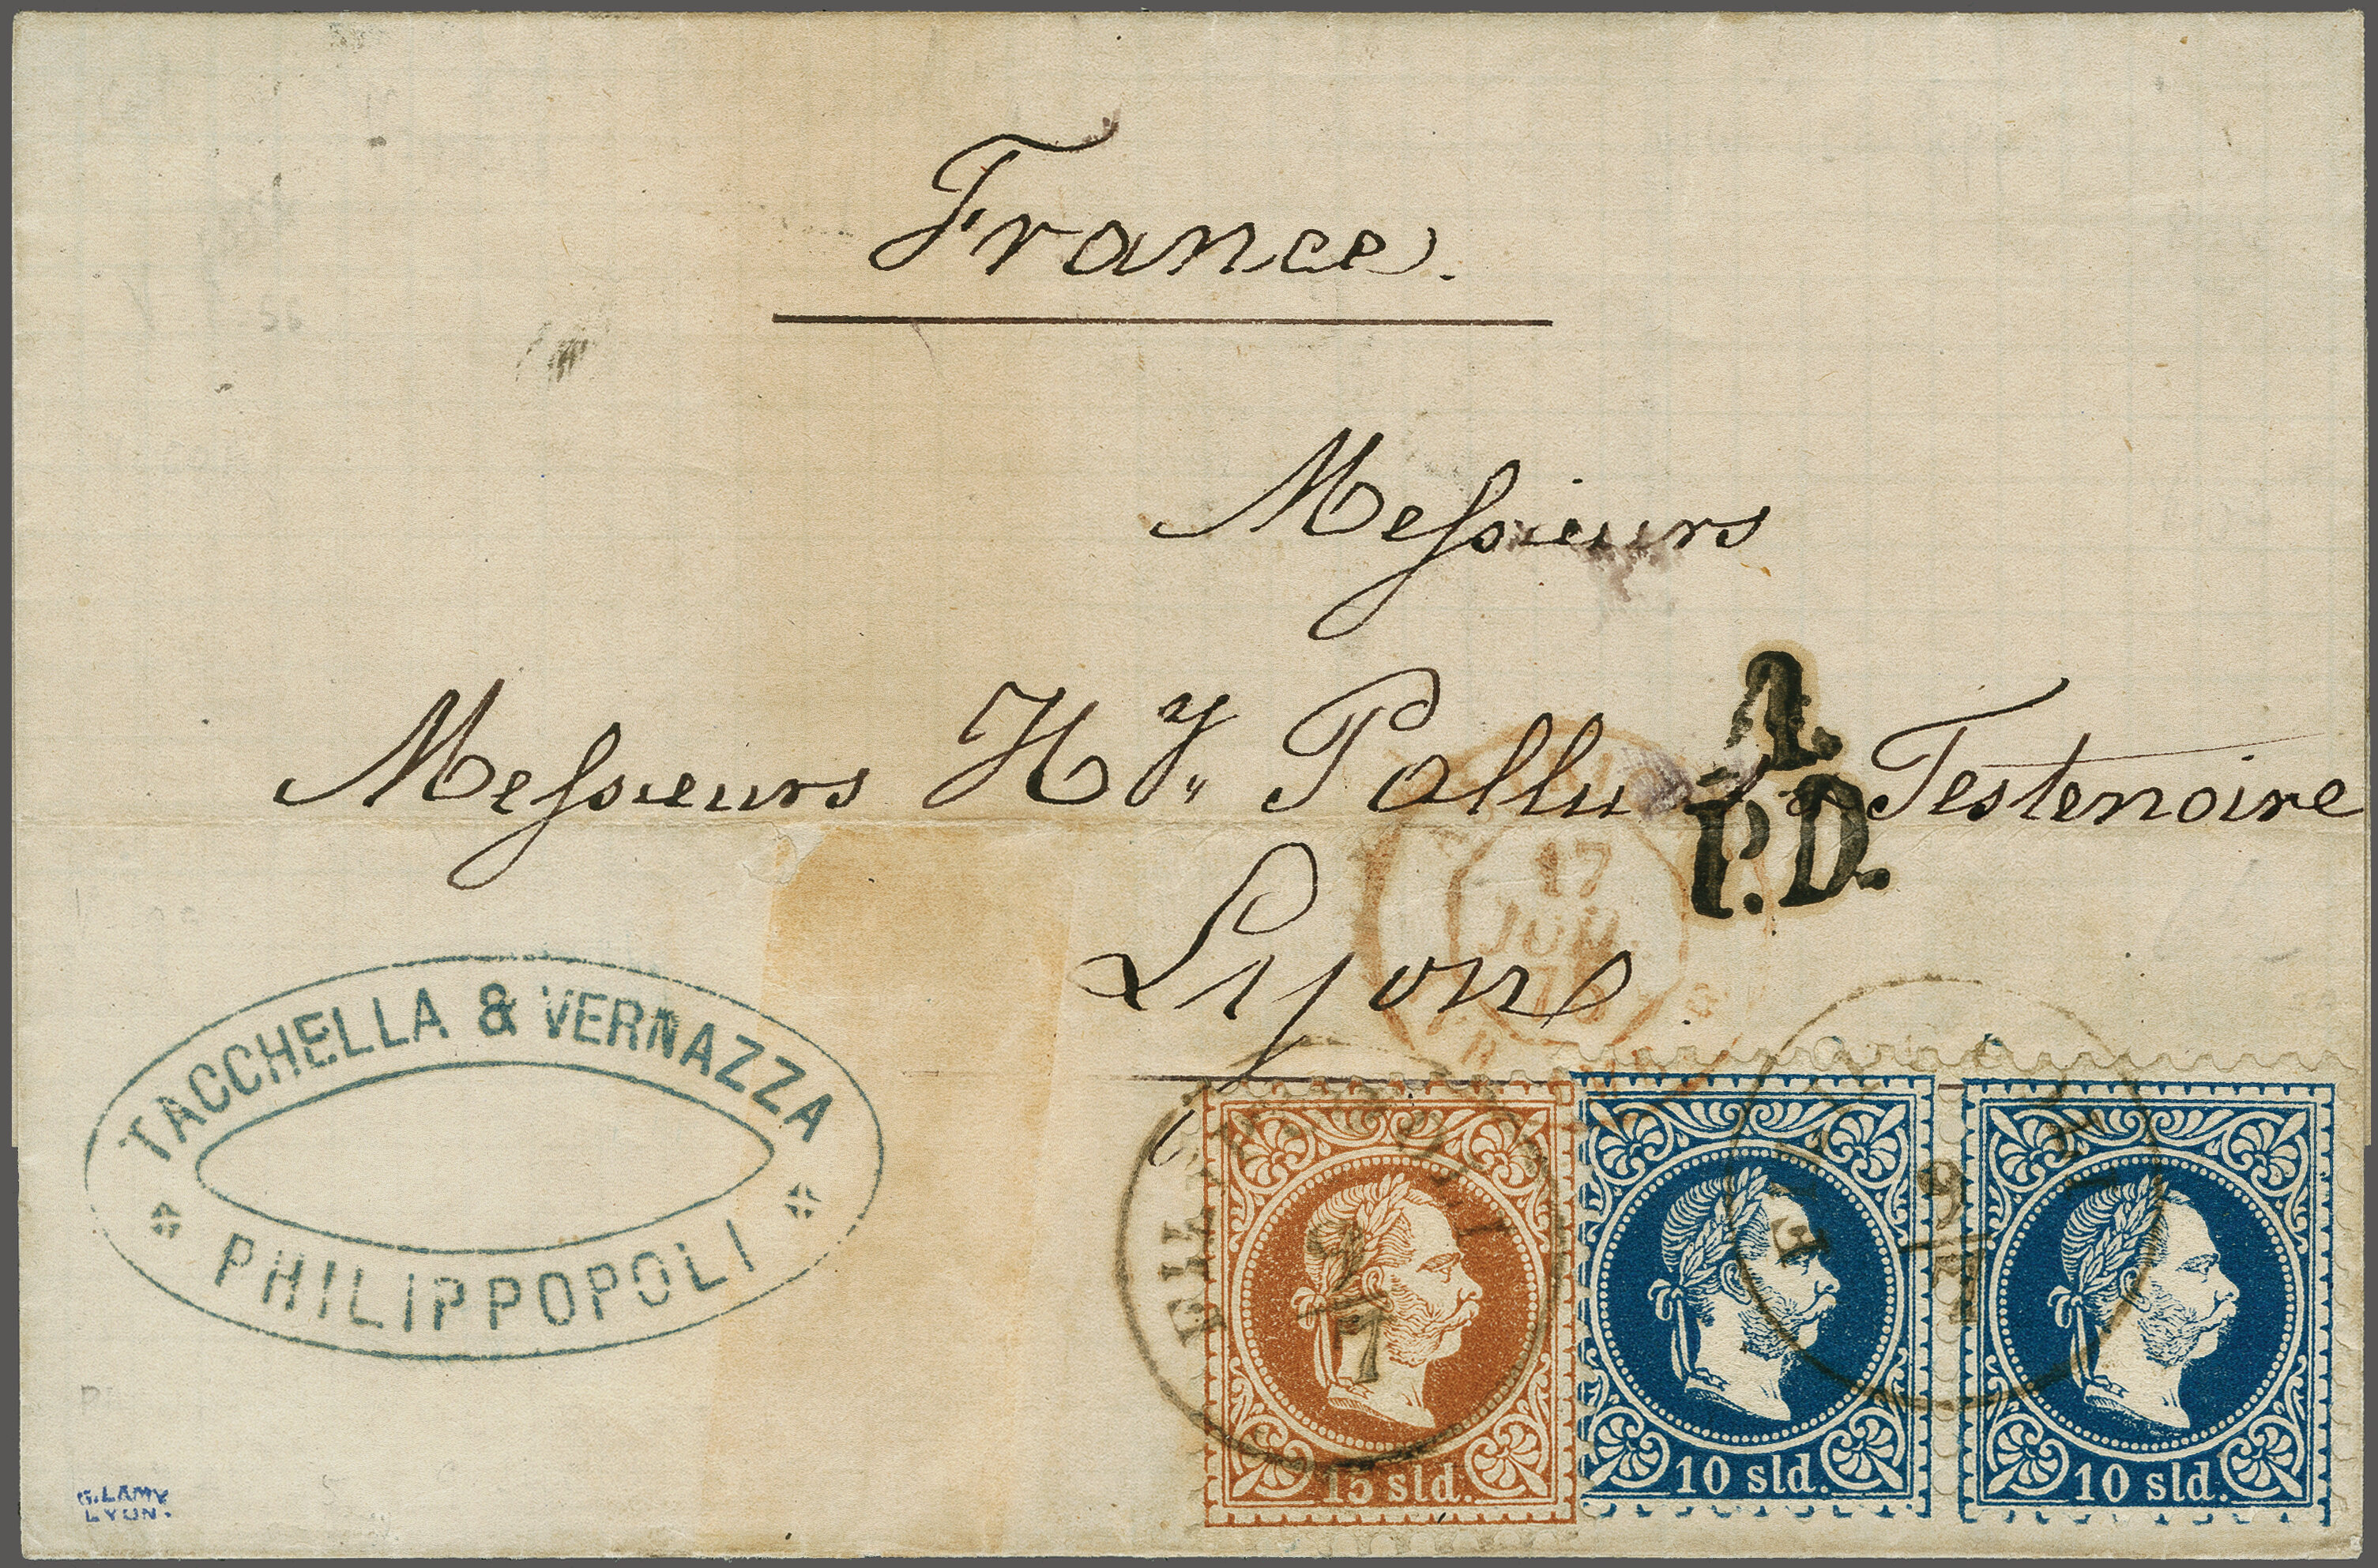 France.
Messieurs
Messieurs Hy. Pallu & Testenoire
A.
P.D.
Lyon
17
JUIN
TACCHELLA & VERNAZZA
PHILIPPOPOLI
9/7
15 sld.
10 sld.
10 sld.
G. LAMY
LYON.